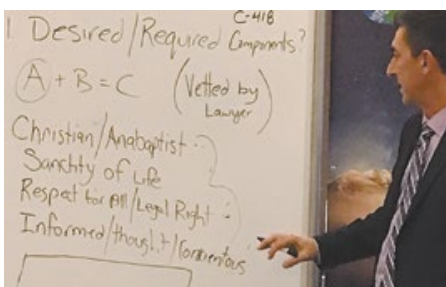 C-418
1. Desired/Required Components?
A + B = C (Vetted by
Lawyer)
Christian/Anabaptist
Sanctity of Life
Respect for All/Legal Right
Informed/thought/